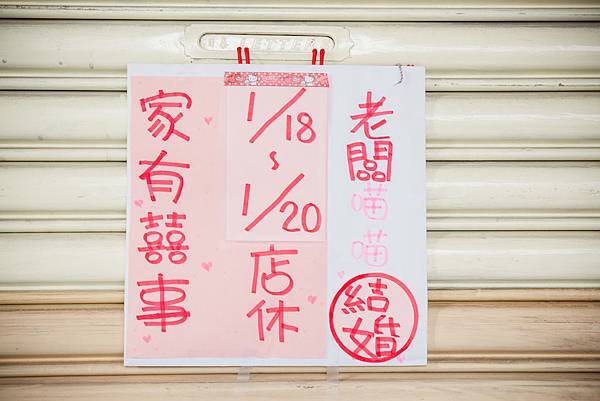 老闆喵喵結婚
1/18
~
1/20
店休
家有囍事